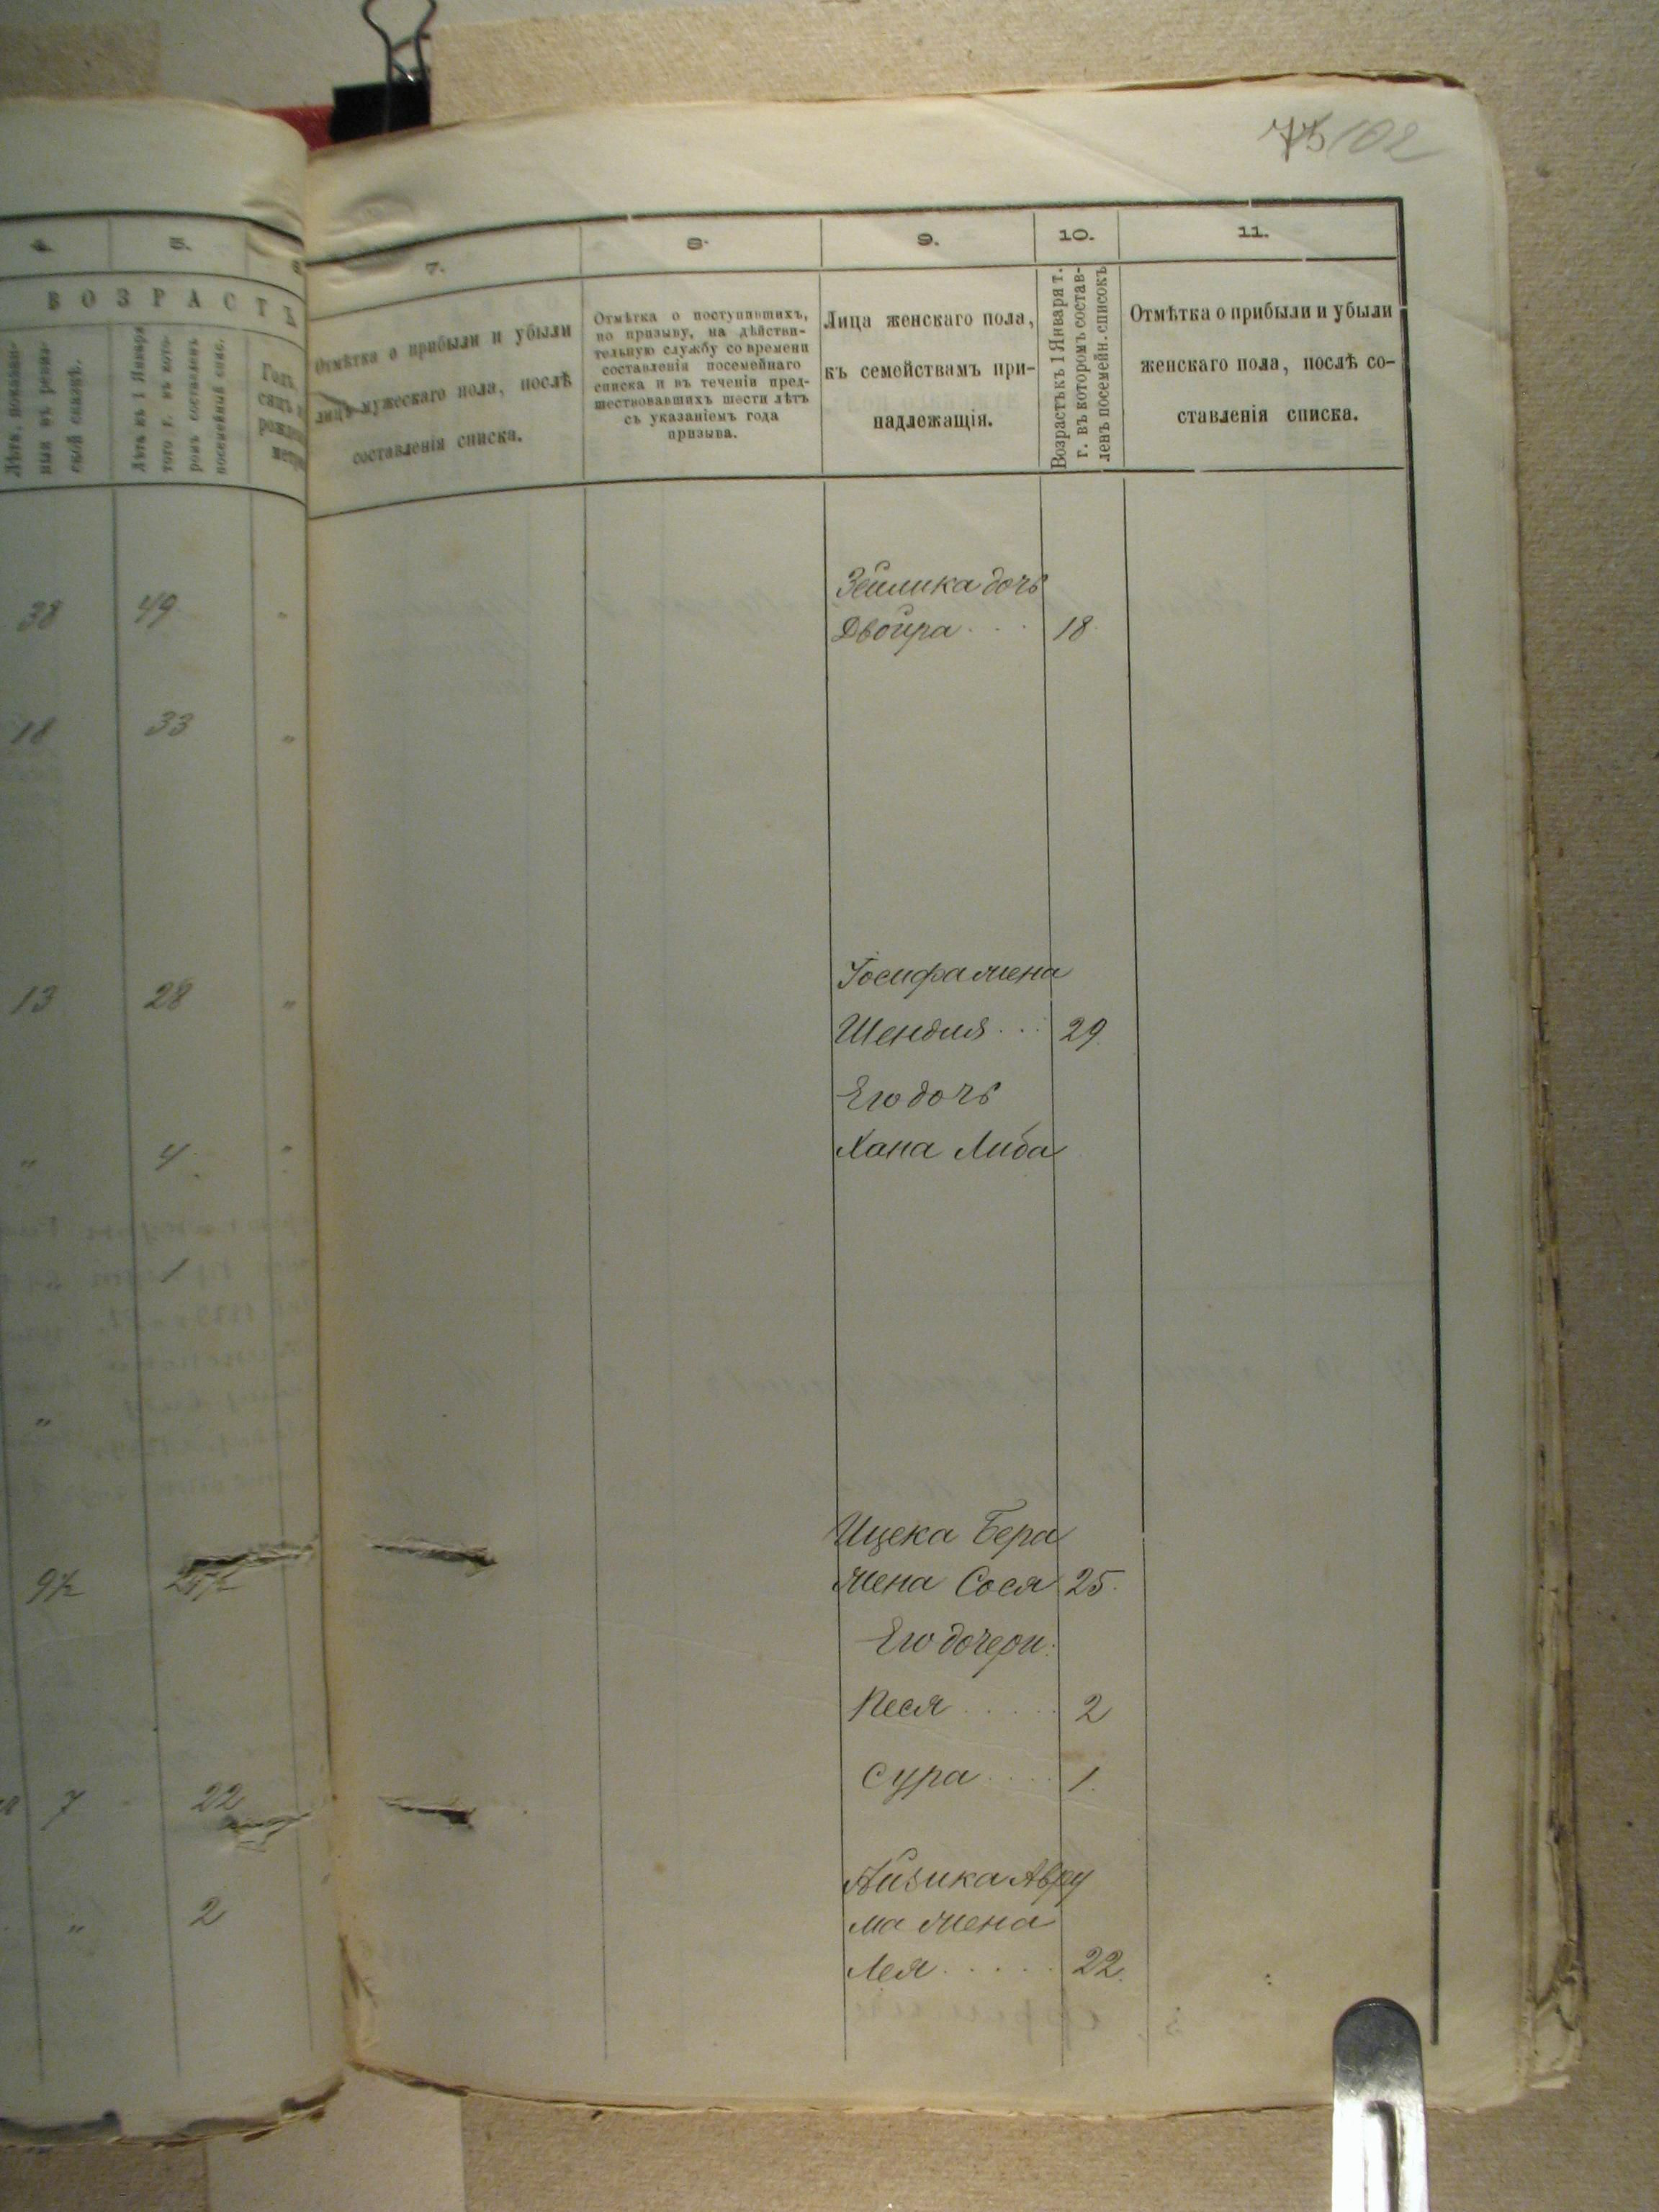 75 102
4.
5.
ВОЗРАСТЪ
Лѣта, показан-
ныя въ ревиз-
ской сказкѣ.
Лѣта къ 1 Января
того г. въ кото-
ромъ составленъ
посемейный спис.
38
49
18
33
13
28
4
1
9½
7
22
2
7.
8.
9.
10.
11.
Отмѣтка о прибыли и убыли
лицъ мужескаго пола, послѣ
составленія списка.
Отмѣтка о поступившихъ,
по призыву, на дѣйстви-
тельную службу со времени
составленія посемейнаго
списка и въ теченіи пред-
шествовавшихъ шести лѣтъ
съ указаніемъ года
призыва.
Лица женскаго пола,
къ семействамъ при-
надлежащія.
Возрастъ къ 1 Января т.
г. въ которомъ состав-
ленъ посемейн. списокъ
Отмѣтка о прибыли и убыли
женскаго пола, послѣ со-
ставленія списка.
Зейлика дочь
Двойра 18
Іосифа жена
Шендля 29
Его дочь
Хана Либа
Ицека Бера
жена Сося 25.
Его дочери.
Песя 2
Сура 1.
Айзика Авру
ма жена
Лея 22.